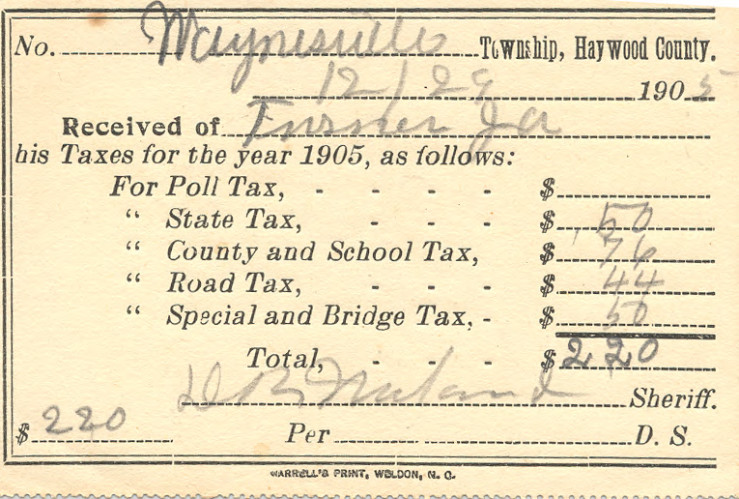 No. Waynesville Township, Haywood County.
12/29 1905
Received of Turner J A
his Taxes for the year 1905, as follows:
For Poll Tax, - - - - $
“ State Tax, - - - $ 50
“ County and School Tax, $ 76
“ Road Tax, - - - $ 44
“ Special and Bridge Tax, - $ 50
Total, - - - $ 220
Sheriff.
$ 220 Per D. S.
HARRELL'S PRINT, WELDON, N. C.